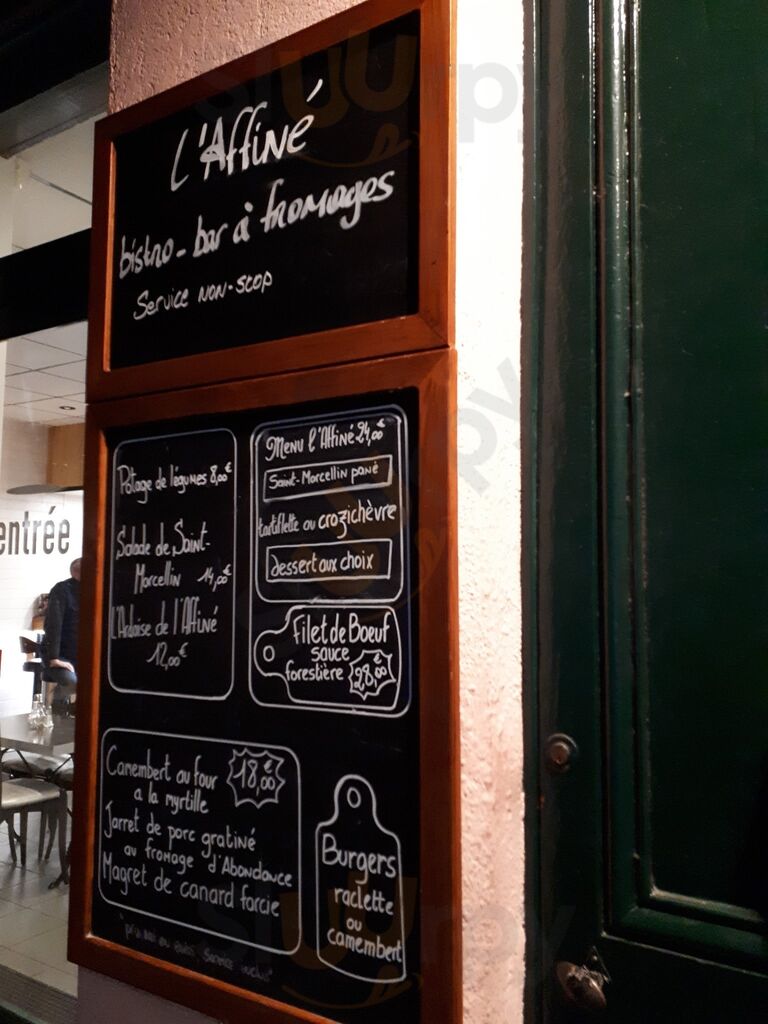 L'Affiné
bistro-bar à fromages
Service non-stop
Potage de légumes 8,00€
Salade de Saint-
Marcellin 14,00€
L'Ardoise de l'Affiné
12,00€
Menu l'Affiné 24,00€
Saint-Marcellin pané
tartiflette ou crozichèvre
dessert aux choix
Filet de Boeuf
sauce
forestière 28,00€
Camembert au four 18,00€
a la myrtille
Jarret de porc gratiné
au fromage d'Abondance
Magret de canard farcie
Burgers
raclette
ou
camembert
entrée
sluurpy
sluurpy